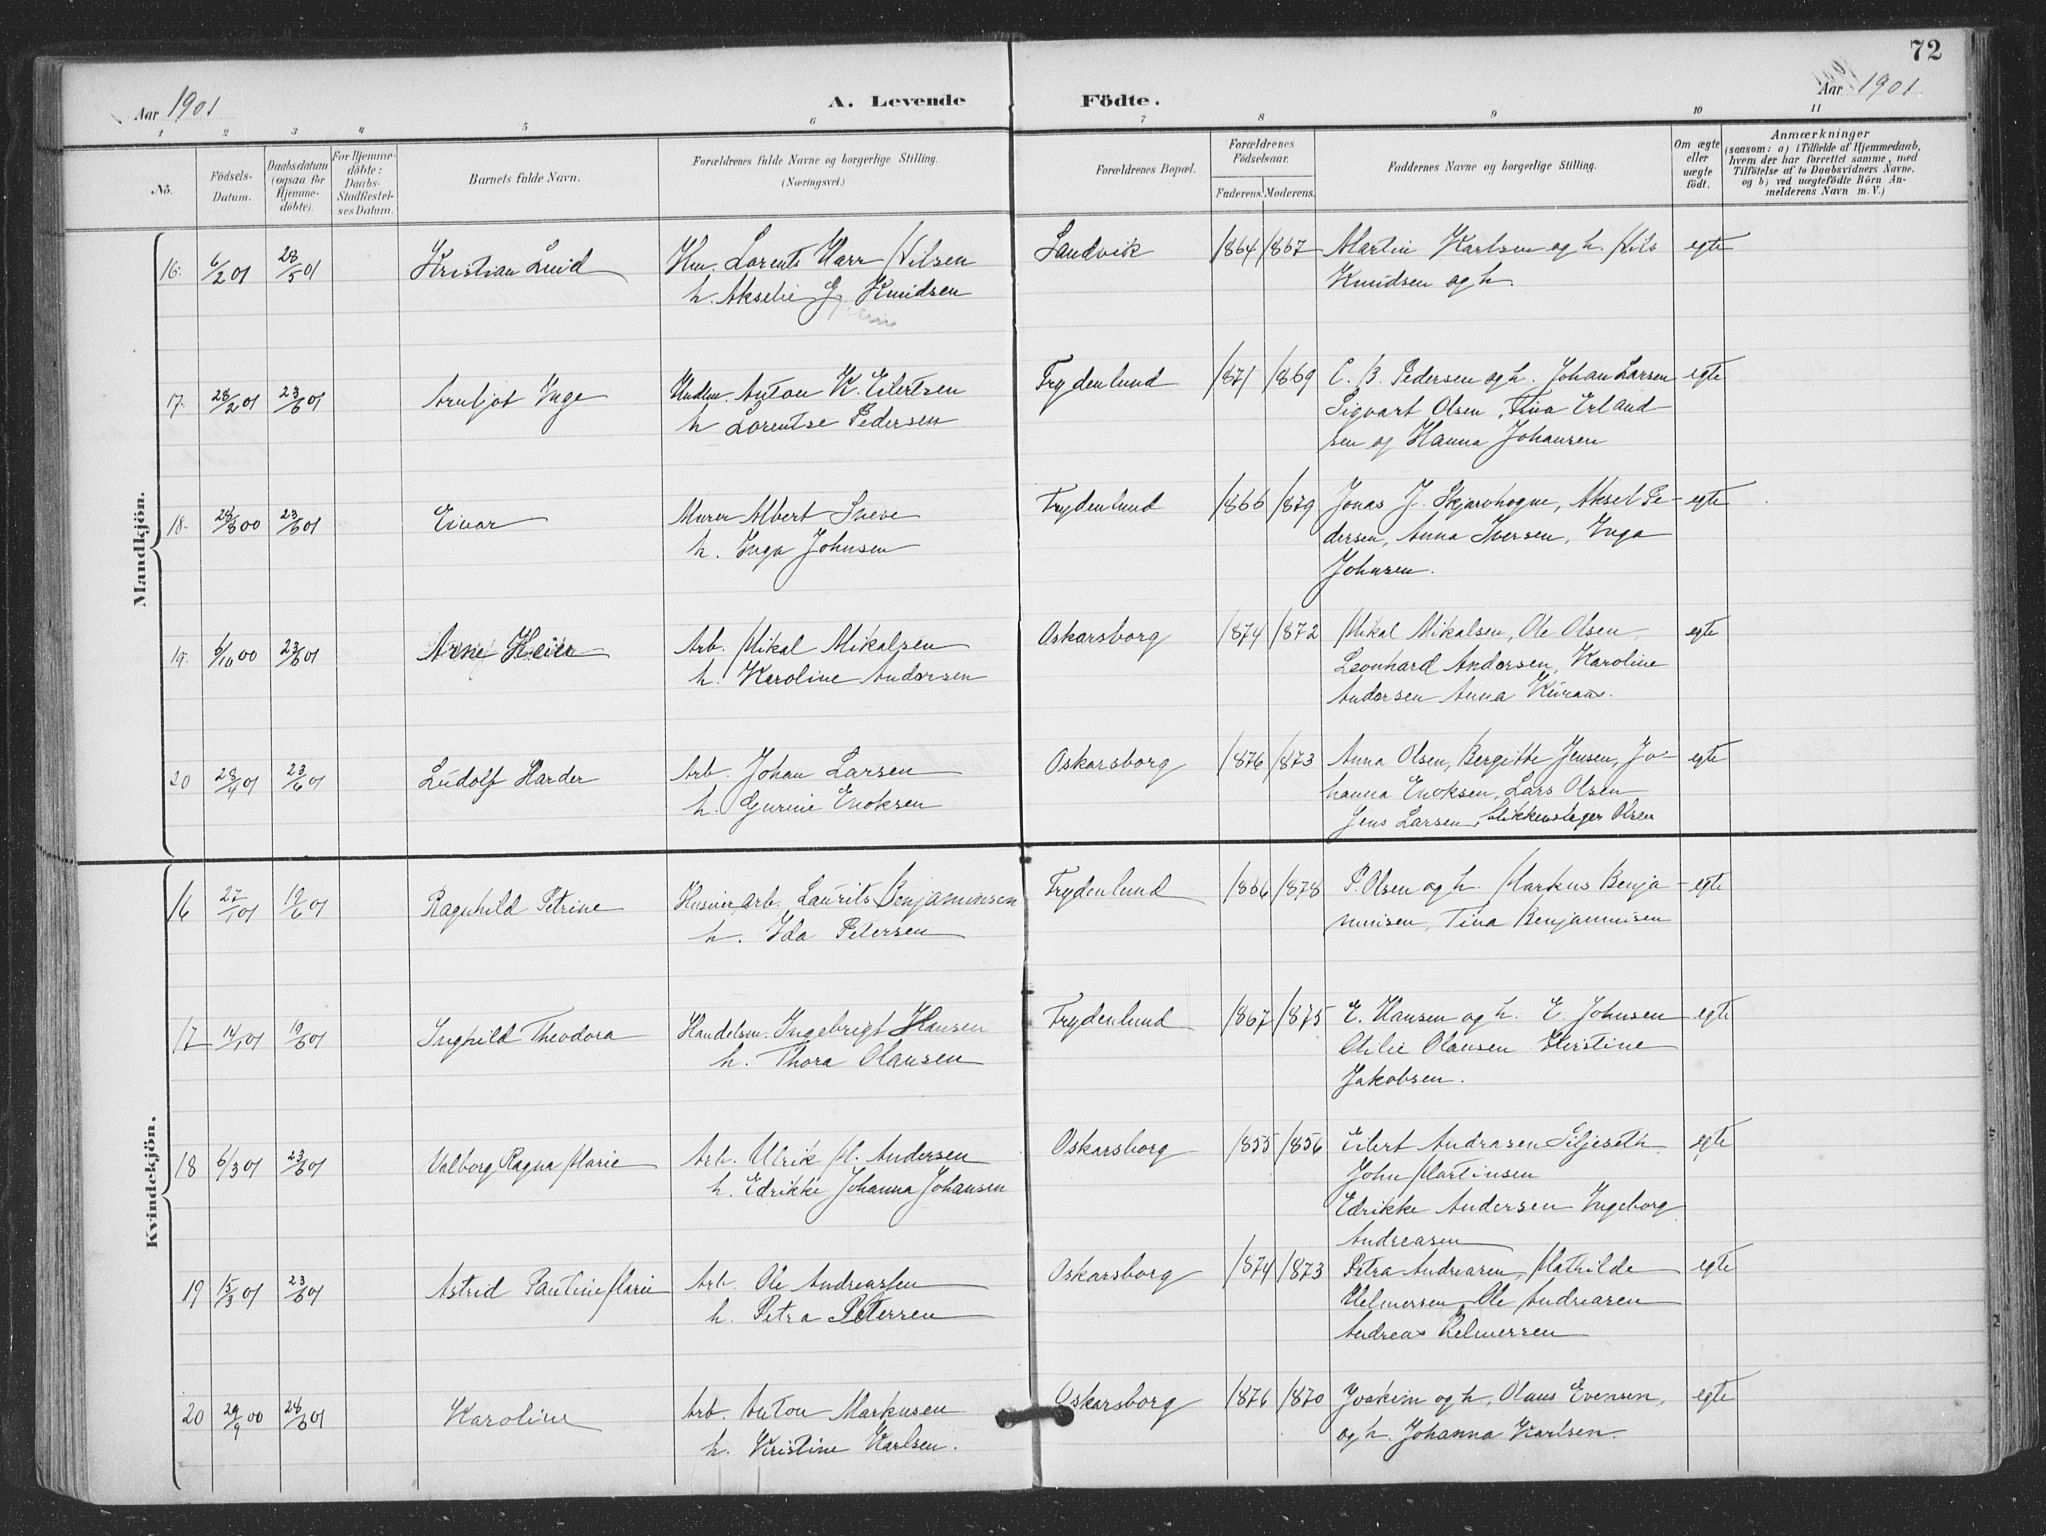 72
Aar 1901
A. Levende
Födte.
Aar 1901
1 2 3 4 5 6 7 8 9 10 11
No.
Födsels-
Datum.
Daabsdatum
(ogsaa for
Hjemme-
döbte).
For Hjemme-
döbte:
Daabs-
Stadfæstel-
ses Datum.
Barnets fulde Navn.
Forældrenes fulde Navne og borgerlige Stilling.
(Næringsvei.)
Forældrenes Bopæl.
Forældrenes
Födselsaar.
Faderens. Moderens.
Faddernes Navne og borgerlige Stilling.
Om ægte
eller
uægte
födt.
Anmærkninger
(saasom: a) i Tilfælde af Hjemmedaab,
hvem der har forrettet samme, med
Tilföielse af to Daabsvidners Navne,
og b) ved uægtefödte Börn An-
melderens Navn m. V.)
Mandkjön.
16. 6/2 01 28/5 01 Kristian Lund Lorents Harr Nilsen Sandvik 1864 1867 Martin Karlsen og h. Nils egte
h. Akselie G Knudsen Knudsen og h.
17. 28/2 01 23/6 01 Arnljot Inge Anton K. Eilertsen Frydenlund 1871 1869 C. B. Pedersen og h. Johan Larsen egte
h Lorentse Pedersen Sigvart Olsen, Tina Erland
sen og Hanna Johansen
18. 28/8 00 23/6 01 Einar Murer Albert Sneve Frydenlund 1866 1879 Jonas J. Skjærhogne, Aksel Pe- egte
h. Inga Johnsen dersen, Anna Iversen, Inga
Johnsen.
19. 6/10 00 23/6 01 Arne Heier Arb. Mikal Mikalsen Oskarsborg 1874 1872 Mikal Mikalsen, Ole Olsen egte
h. Karoline Andersen Leonhard Andersen, Karoline
Andersen Anna
20 28/4 01 23/6 01 Ludolf Harder Arb. Johan Larsen Oskarsborg 1876 1873 Anna Olsen, Bergitte Jensen, Jo- egte
h. Gurine Enoksen hanna Enoksen, Lars Olsen
Jens Larsen, blikkenslager Olsen
Kvindekjön.
16 27/1 01 19/6 01 Ragnhild Petrine arb. Laurits Benjaminsen Frydenlund 1866 1878 P. Olsen og h. Markus Benja- egte
h. Ida Petersen minsen, Tina Benjaminsen
17 14/1 01 19/6 01 Inghild Theodora Handelsm. Ingebrigt Hansen Frydenlund 1867 1875 E. Hansen og h. E. Johnsen egte
h. Thora Olausen Otilie Olausen Kirstine
Jakobsen.
18 6/3 01 23/6 01 Valborg Ragna Marie Arb. Ulrik M. Andersen Oskarsborg 1855 1856 Eilert Andrasen Siljeseth egte
h. Edrikke Johanna Johansen John Martinsen
Edrikke Andersen Ingeborg
Andreasen
19 15/3 01 23/6 01 Astrid Pauline Marie Arb. Ole Andreassen Oskarsborg 1874 1873 Petra Andreasen, Mathilde egte
h. Petra Petersen Helmersen Ole Andreasen
Andreas Helmersen
20 29/9 00 28/6 01 Karoline Arb. Anton Markusen Oskarsborg 1876 1870 Joakim og h, Olaus Evensen, egte
h. Kristine Karlsen. og h. Johanna Karlsen.